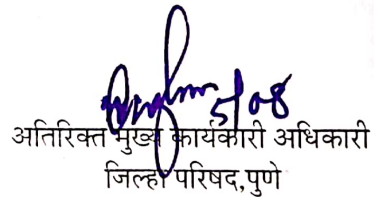 5/08
अतिरिक्त मुख्य कार्यकारी अधिकारी
जिल्हा परिषद,पुणे